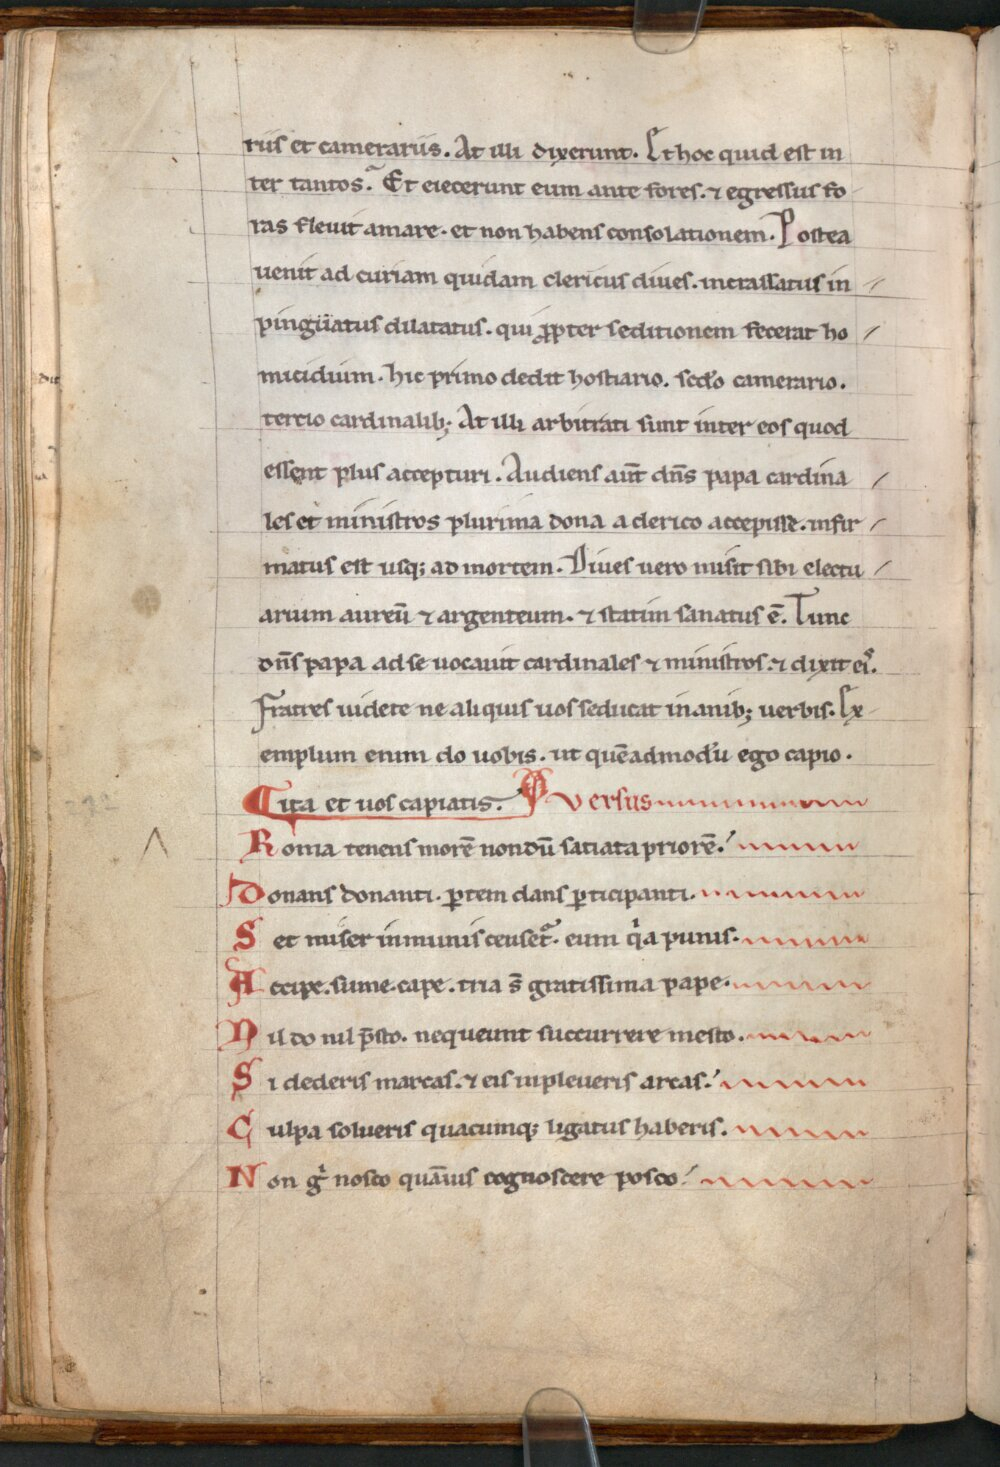 riis et camerariis. At illi dixerunt. Et hoc quid est in
ter tantos? Et eiecerunt eum ante fores. ⁊ egressus fo-
ras fleuit amare. et non habens consolationem. Postea
uenit ad curiam quidam clericus diues. incrassatus in
pinguatus dilatatus. qui ꝓpter seditionem fecerat ho
micidium. hic primo dedit hostiario. scd̾o camerario.
tercio cardinalib; At illi arbitrati sunt inter eos quod
essent plus accepturi. Audiens aut̄ dn̄s papa cardina
les et ministros plurima dona a clerico accepisse. infir
matus est usq; ad mortem. Diues uero misit sibi electu
arium aureū ⁊ argenteum. ⁊ statim sanatus ē. Tunc
dn̄s papa ad se uocauit cardinales ⁊ ministros. ⁊ dixit ei᷒.
Fratres uidete ne aliquis uos seducat inanib; uerbis. Ex-
emplum enim do uobis. ut quēadmodū ego capio.
Ita et uos capiatis. Versus
Roma tenens morē nondū satiata priorē.
Donans donanti. ꝑtem dans ꝑticipanti.
Set miser inmunis censet᷑. eum qͥa punis.
Accipe. sume. cape. tria s̄ gratissima pape.
Nil do nil p̄sto. nequeunt succurrere mesto.
Si dederis marcas. ⁊ eis inpleueris arcas.
Culpa solueris quacumq; ligatus haberis.
Non gͥ nosco quāuis cognoscere posco